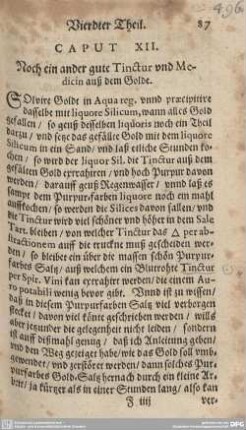 496
Vierdter Theil. 87
CAPUT XII.
Noch ein ander gute Tinctur vnd Me-
dicin auß dem Golde.
SOlvire Golde in Aqua reg. vnnd præcipitire
dasselbe mit liquore Silicum, wann alles Gold
gefallen / so geuß desselben liquoris noch ein Theil
darzu / vnd setze das gefällte Gold mit dem liquore
Silicum in ein Sand / vnd laß etliche Stunden ko-
chen / so wird der liquor Sil. die Tinctur auß dem
gefälten Gold extrahiren / vnd hoch Purpur davon
werden / darauff geuß Regenwasser / vnnd laß es
sampt dem Purpurfarben liquore noch ein mahl
auffkochen / so werden die Silices davon fallen / vnd
die Tinctur wird viel schöner vnd höher in dem Sale
Tart. bleiben / von welcher Tinctur das △ per ab-
stractionem auff die truckne muß gescheiden wer-
den / so bleibet ein über die massen schön Purpur-
farbes Saltz / auß welchem ein Blutrohte Tinctur
per Spir. Vini kan extrahirt werden / die einem Au-
ro potabili wenig bevor gibt. Vnnd ist zu wissen /
daß in diesem Purpurfarben Saltz viel verborgen
stecket / davon viel könte geschrieben werden / wills
aber jetzunder die gelegenheit nicht leiden / sondern
ist auff dißmahl genug / daß ich Anleitung geben
vnd den Weg gezeiget habe / wie das Gold soll vmb-
gewendet / vnd zerstöret werden / dann solches Pur-
purfarbes Gold-Saltz hernach durch ein kleine Ar-
beit / ja kürzer als in einer Stunden lang / also kan
F iiij ver-